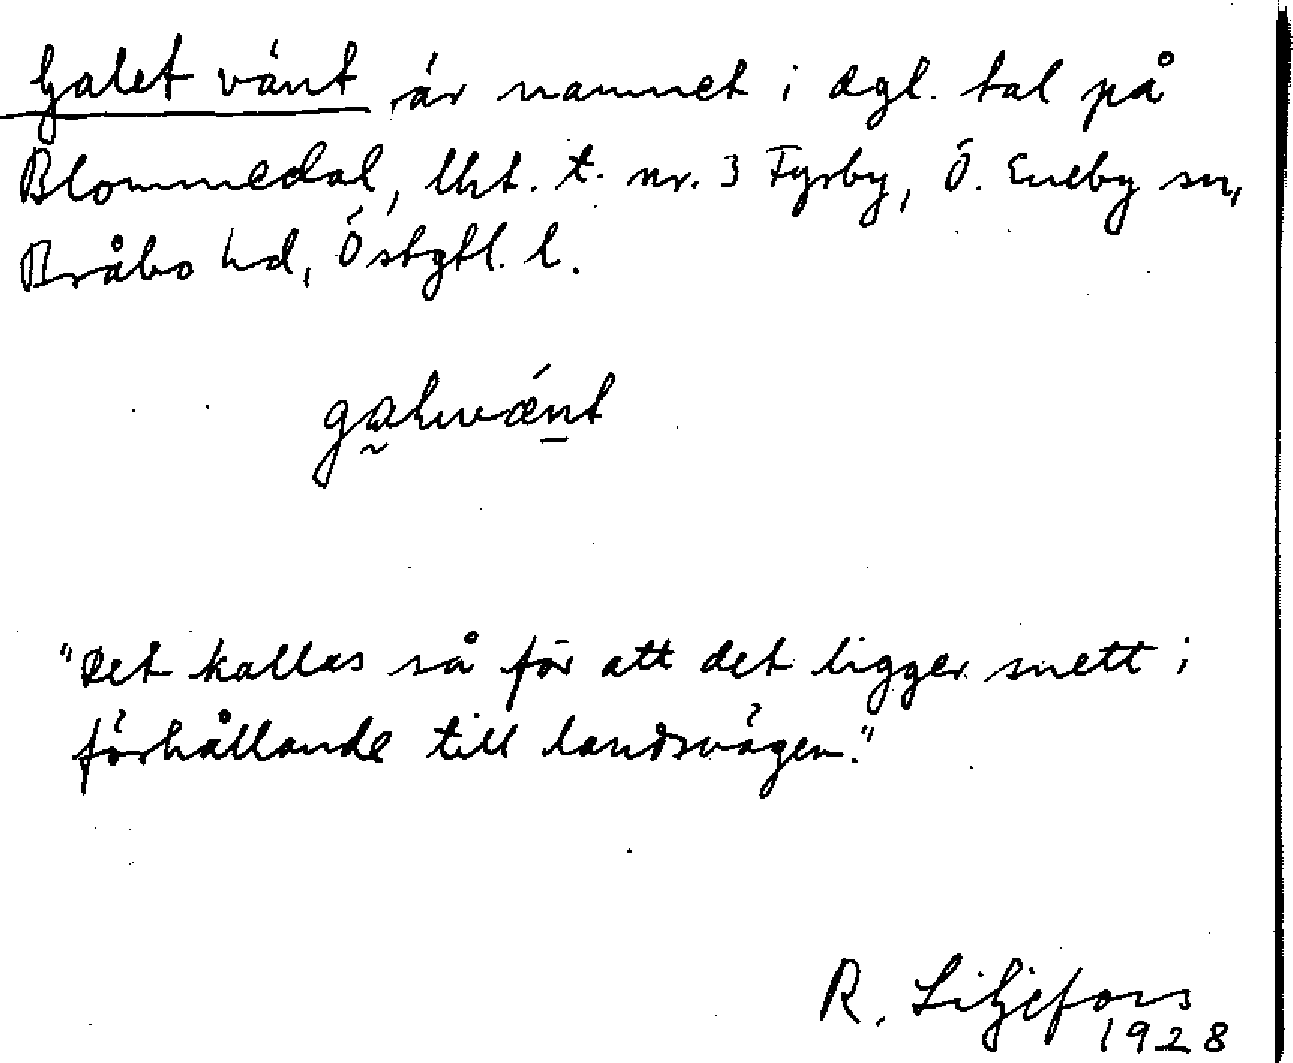 Galet vänt är namnet i dgl. tal på
Blommedal, lht. t. nr. 3 Fyrby, Ö. Eneby sn,
Bråbo hd, Östgtl. l.
galuvænt
"Det kallas så för att det ligger snett i
förhållande till landsvägen."
R. Liljefors
1928